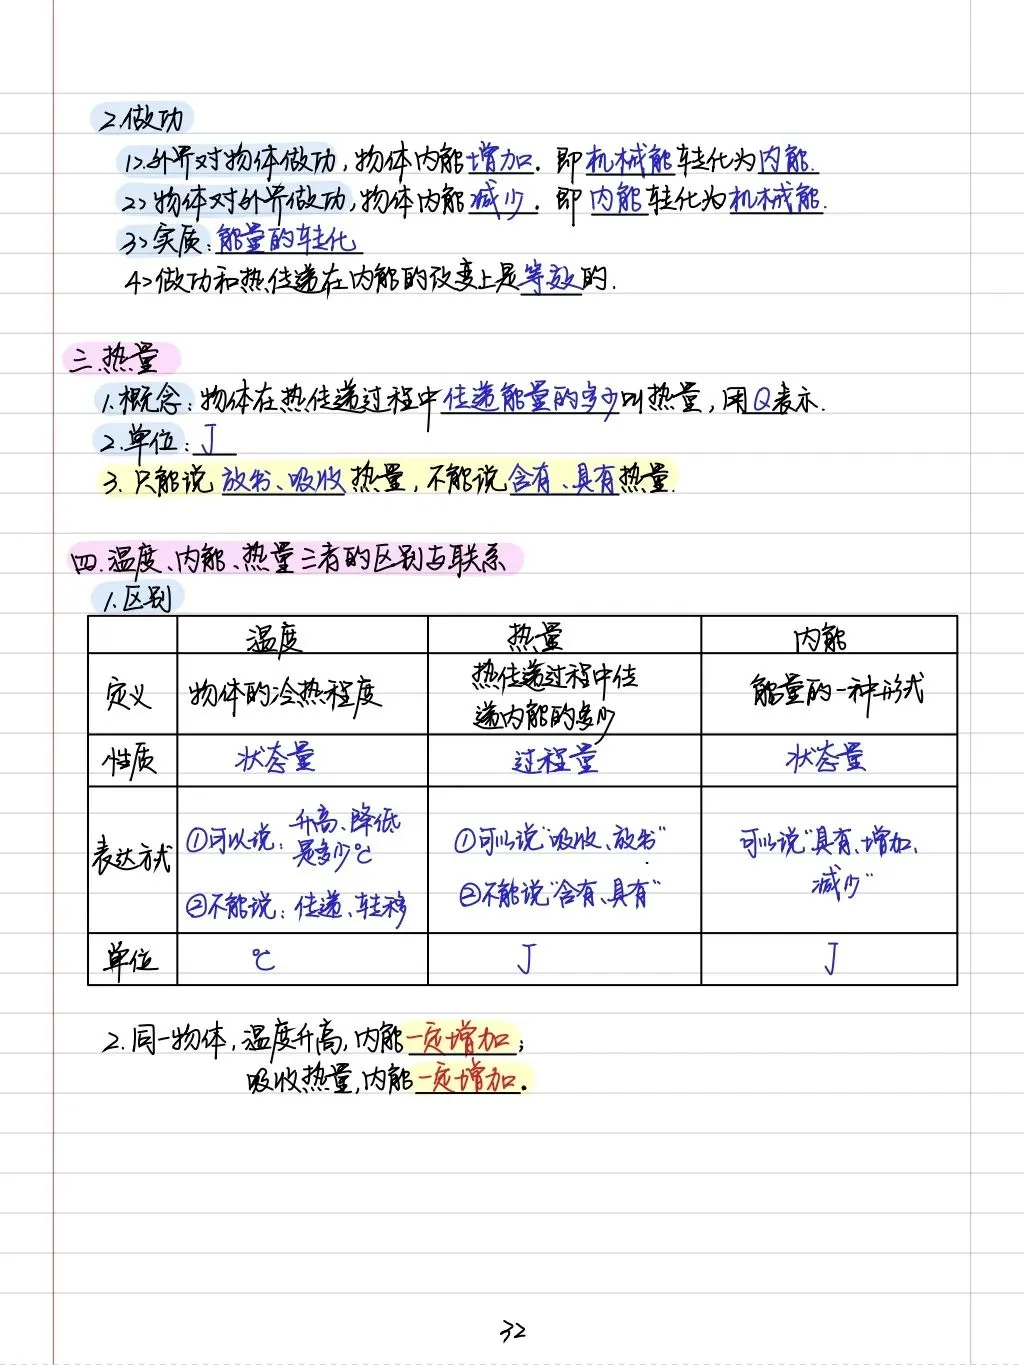 2.做功
1>.外界对物体做功,物体内能增加.即机械能转化为内能.
2>物体对外界做功,物体内能减少.即内能转化为机械能.
3>实质:能量的转化
4>做功和热传递在内能的改变上是等效的.
三.热量
1.概念:物体在热传递过程中传递能量的多少叫热量,用Q表示.
2.单位:J
3.只能说放出、吸收热量,不能说含有、具有热量.
四.温度、内能、热量三者的区别与联系
1.区别
温度 热量 内能
定义 物体的冷热程度 热传递过程中传递内能的多少 能量的一种形式
性质 状态量 过程量 状态量
表达方式 ①可以说:升高、降低 是多少℃ ①可以说"吸收、放出" 可以说"具有、增加、减少"
②不能说:传递、转移 ②不能说"含有、具有"
单位 ℃ J J
2.同一物体,温度升高,内能一定增加;
吸收热量,内能一定增加.
32